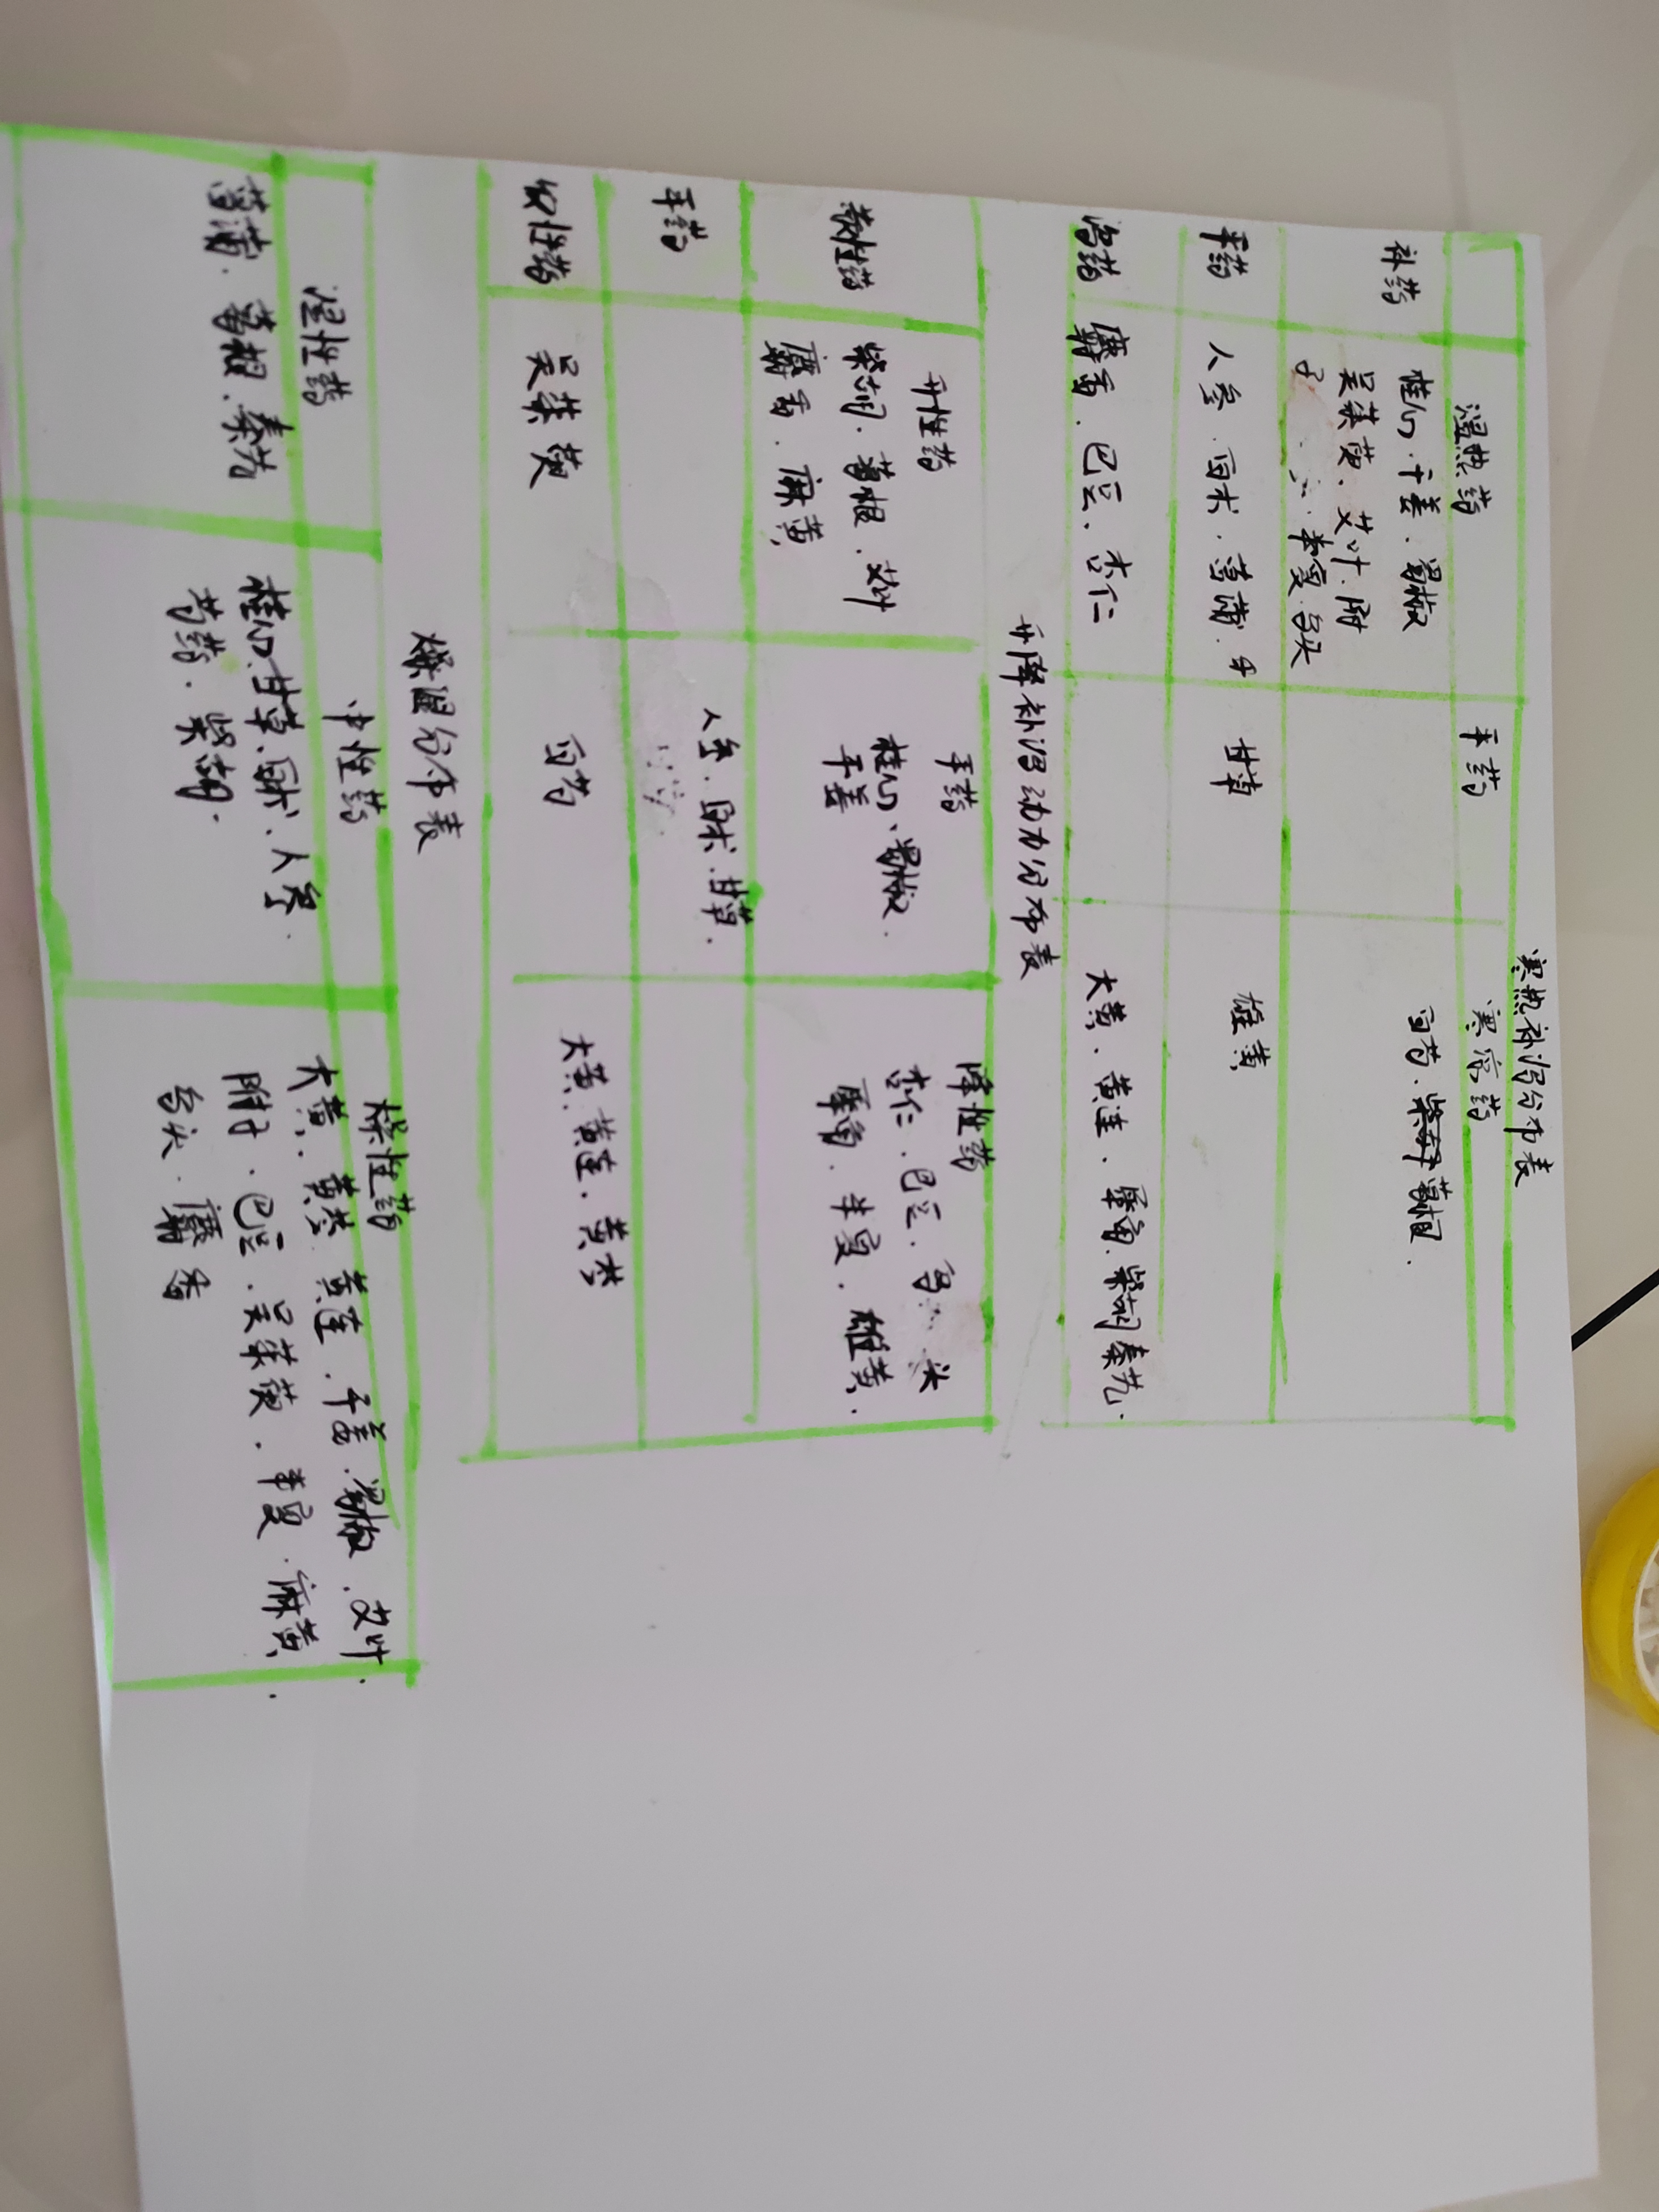 寒热补泻分布表
温热药 平药 寒凉药
补药 桂心、干姜、蜀椒 白芍、葛根.
吴茱萸、艾叶、附
子、半夏、乌头
平药 人参、白术、菖蒲、 甘草 雄黄
泻药 麝香、巴豆、杏仁 大黄、黄连、犀角、柴胡、秦艽.
升降补泻动力分布表
升性药 平药 降性药
散性药 柴胡、葛根、艾叶 桂心、蜀椒、 杏仁、巴豆、乌头
麝香、麻黄 干姜 犀角、半夏、雄黄.
平药 人参、白术、甘草.
收性药 吴茱萸 白芍 大黄、黄连、黄芩
燥湿分布表
湿性药 中性药 燥性药
菖蒲、葛根、秦艽 桂心、甘草、白术、人参. 大黄、黄芩、黄连、干姜、蜀椒、艾叶.
芍药、柴胡. 附子、巴豆、吴茱萸、半夏、麻黄.
乌头、麝香